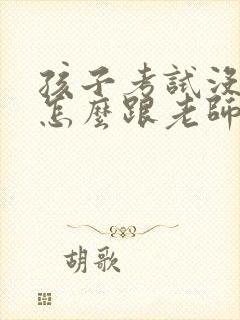 孩子考試沒
怎麼跟老師
胡歌